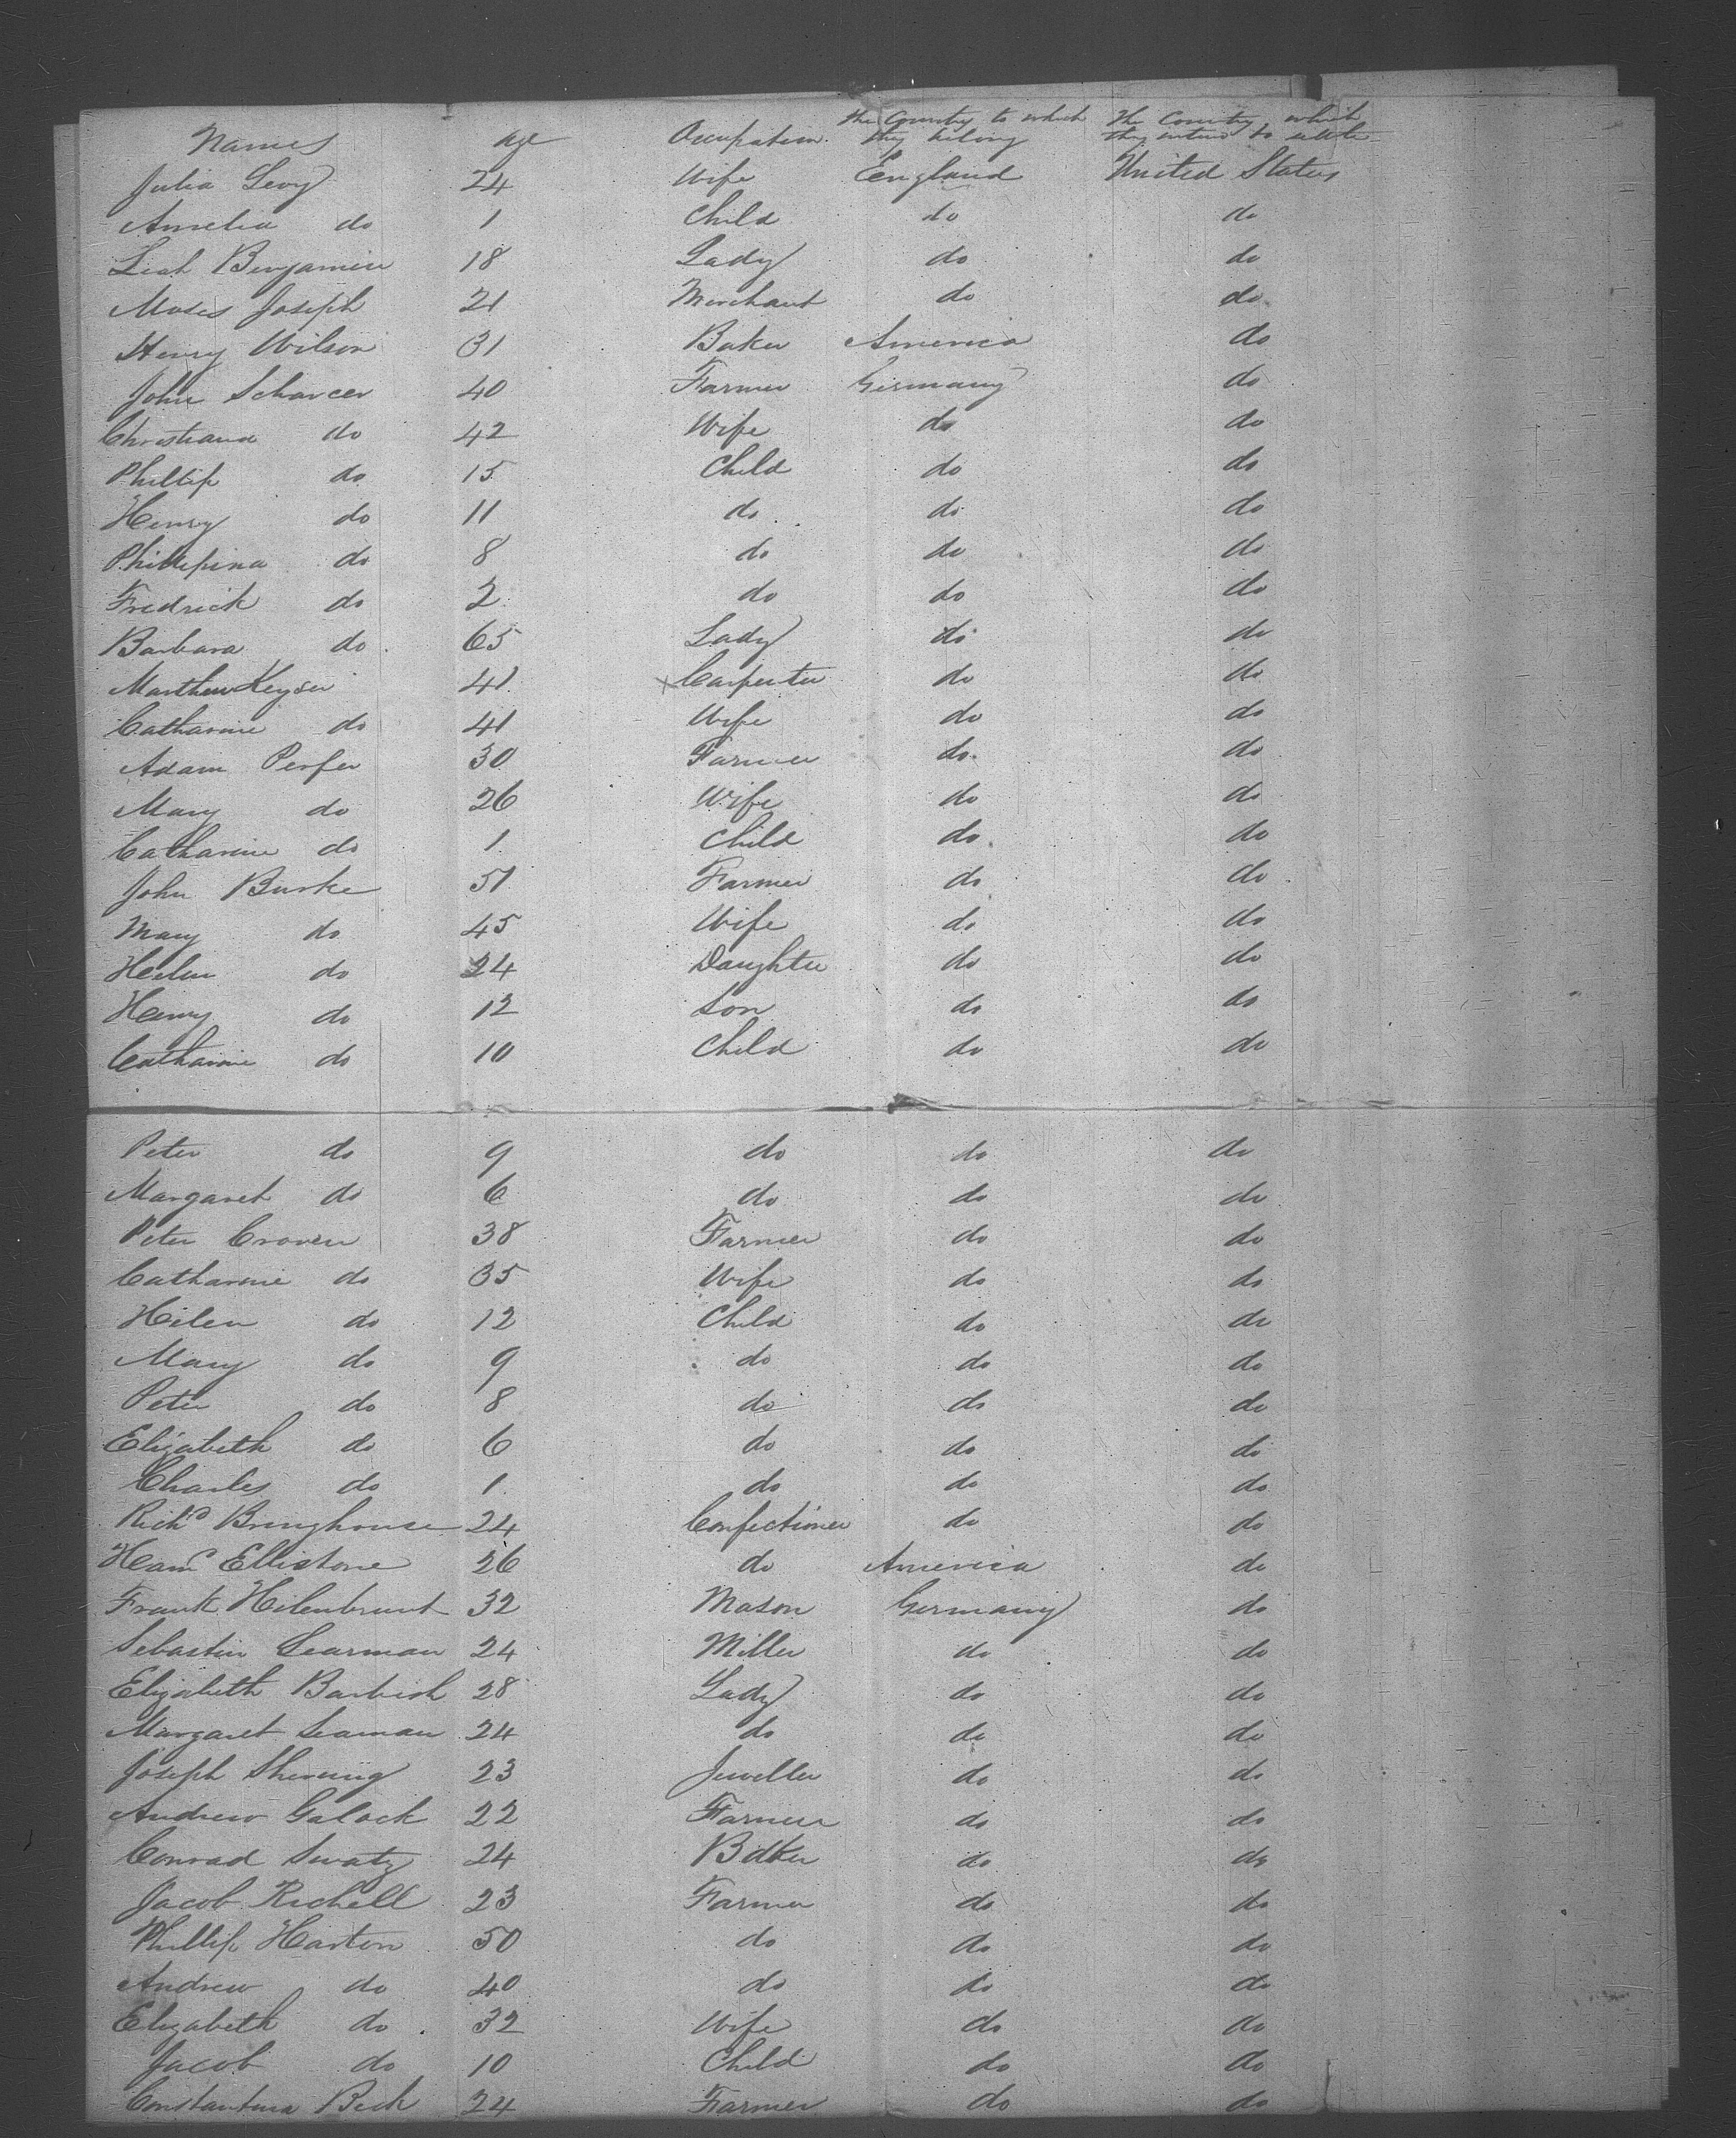 Names age Occupation. the Country to which they belong The Country which they intend to settle
Julia Levy 24 Wife England United States
Amelia do 1 Child do do
Leah Benjamin 18 Lady do do
Moses Joseph 21 Merchant do do
Henry Wilson 31 Baker America do
John Scharcer 40 Farmer Germany do
Christiana do 42 Wife do do
Phillip do 15 Child do do
Henry do 11 do do do
Phillipina do 8 do do do
Fredrick do 2 do do do
Barbara do 65 Lady do do
Marthew Keyser 41 Carpenter do do
Catharine do 41 Wife do do
Adam Perfer 30 Farmer do do
Mary do 26 Wife do do
Catharine do 1 Child do do
John Burke 51 Farmer do do
Mary do 45 Wife do do
Helen do 24 Daughter do do
Henry do 12 Son do do
Catharine do 10 Child do do
Peter do 9 do do do
Margaret do 6 do do do
Peter Croven 38 Farmer do do
Catharine do 35 Wife do do
Helen do 12 Child do do
Mary do 9 do do do
Peter do 8 do do do
Elizabeth do 6 do do do
Charles do 1 do do do
Richd Bringhouse 24 Confectioner do do
Ellistone 26 do America do
Frank Hilenbrunt 32 Mason Germany do
Sebastin Learman 24 Miller do do
Elizabeth Barbish 28 Lady do do
Margaret Seaman 24 do do do
Joseph Sherring 23 Jeweller do do
Andrew Galock 22 Farmer do do
Conrad Swatz 24 Baker do do
Jacob Richell 23 Farmer do do
Phillip Harton 50 do do do
Andrew do 40 do do do
Elizabeth do 32 Wife do do
Jacob do 10 Child do do
Constantina Beck 24 Farmer do do